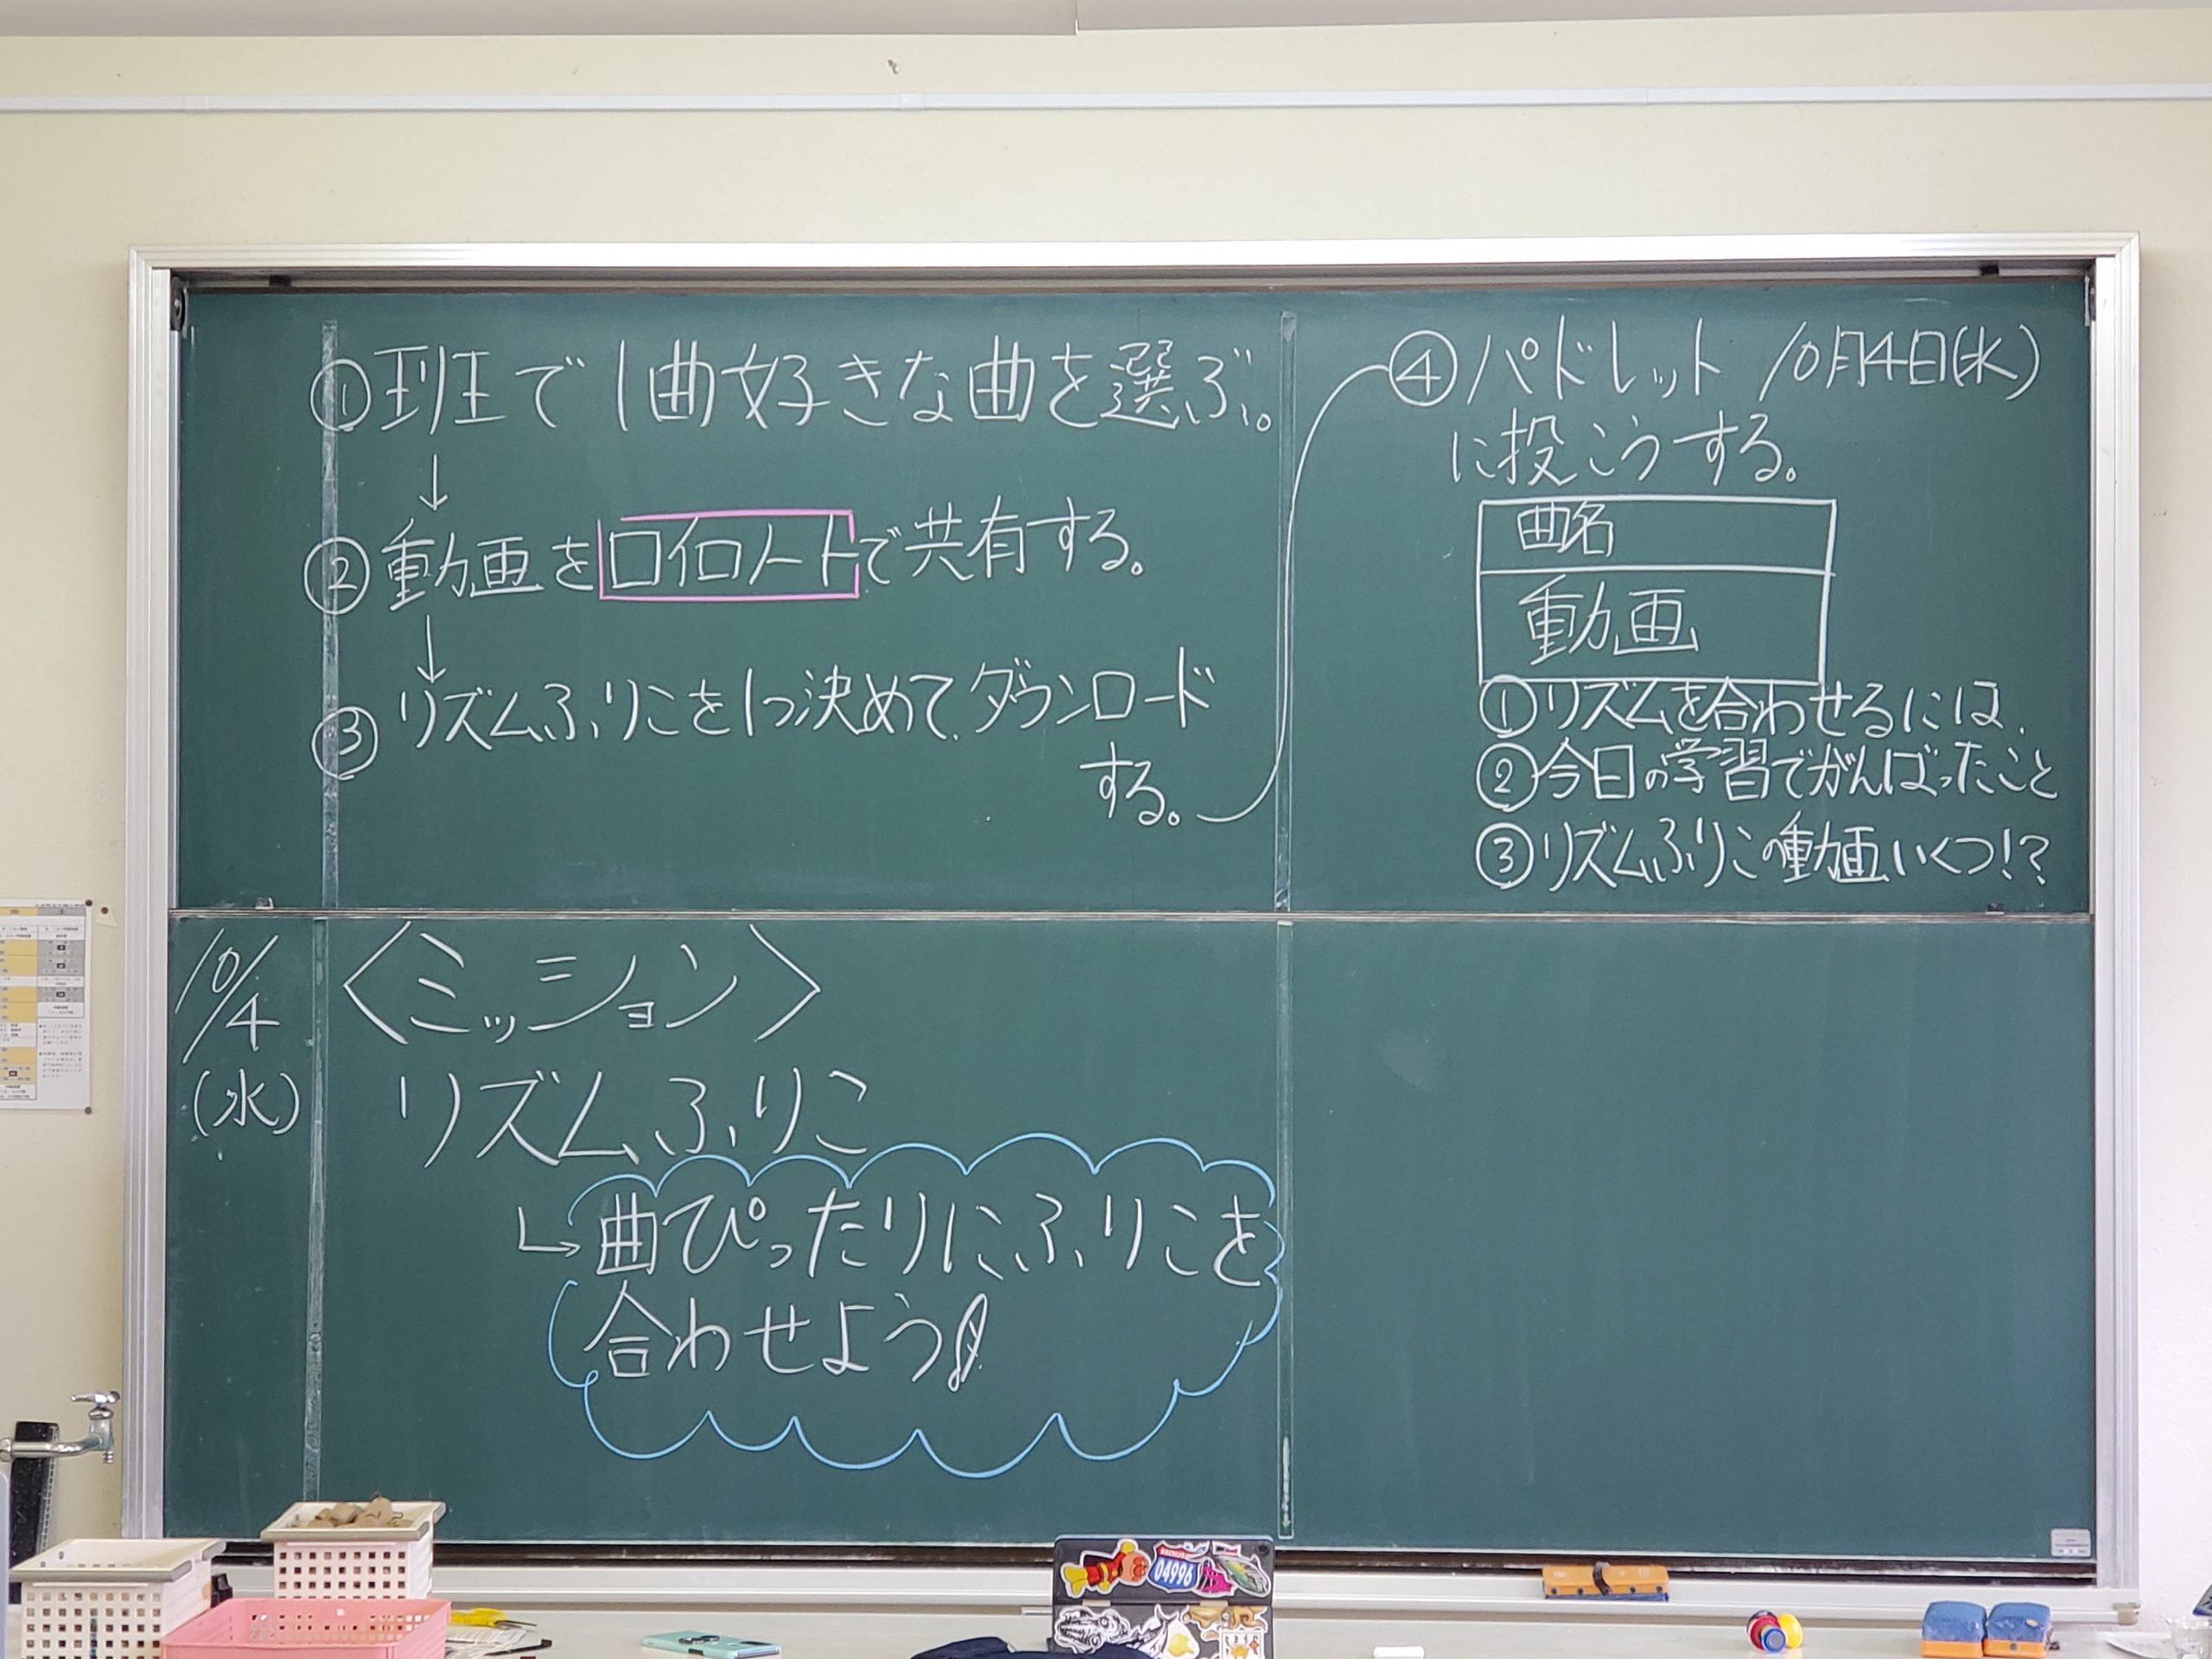 ①班で1曲好きな曲を選ぶ。
↓
②動画をロイロノートで共有する。
↓
③リズムふりこを1つ決めて、ダウンロード
する。
④パドレット 10月4日(水)
に投こうする。
曲名
動画
①リズムを合わせるには、
②今日の学習でがんばったこと
③リズムふりこの動画いくつ!?
10/4
(水)
〈ミッション〉
リズムふりこ
↳曲ぴったりにふりこを
合わせよう!
04996